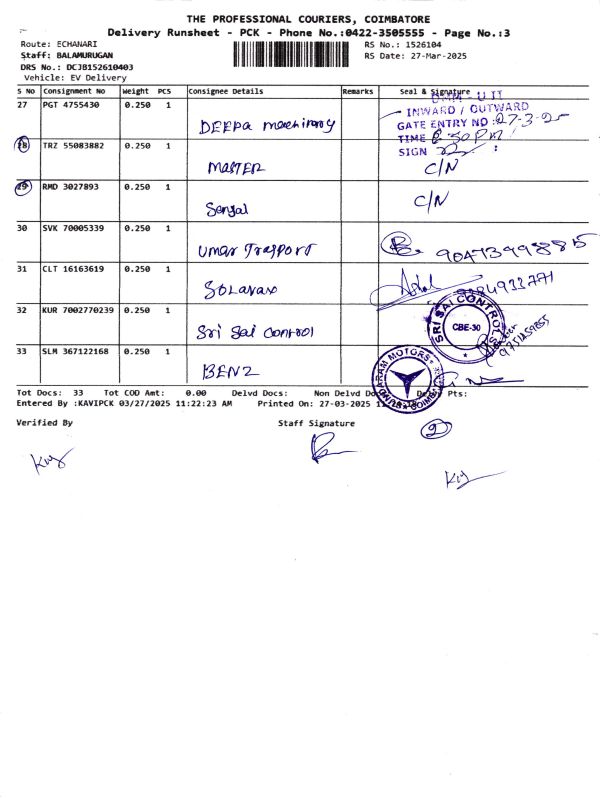 THE PROFESSIONAL COURIERS, COIMBATORE
Delivery Runsheet - PCK - Phone No.:0422-3505555 - Page No.:3
Route: ECHANARI
RS No.: 1526104
Staff: BALAMURUGAN
RS Date: 27-Mar-2025
DRS No.: DCJB152610403
Vehicle: EV Delivery
S No Consignment No Weight PCS Consignee Details Remarks Seal & Signature
27 PGT 4755430 0.250 1
DEEPA Machinary
INWARD / OUTWARD
GATE ENTRY NO :27-3-25
TIME 30PM
SIGN
28 TRZ 55083882 0.250 1
MASTER C/N
29 RMD 3027893 0.250 1
C/N
30 SVK 70005339 0.250 1
Umar Trasport 9047399885
31 CLT 16163619 0.250 1
SOLAVAX
32 KUR 7002770239 0.250 1
Sri Sai Control
SRI SAI CONTROLS
CBE-30
33 SLM 367122168 0.250 1
BENZ
MOTORS
Tot Docs: 33 Tot COD Amt: 0.00 Delvd Docs: Non Delvd Pts:
Entered By :KAVIPCK 03/27/2025 11:22:23 AM Printed On: 27-03-2025
Verified By Staff Signature
2